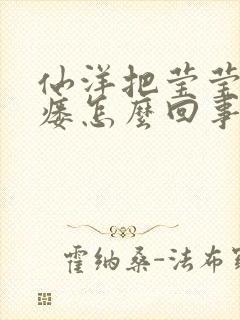 仙洋把莹莹
痿怎麽回事
霍纳桑-法布